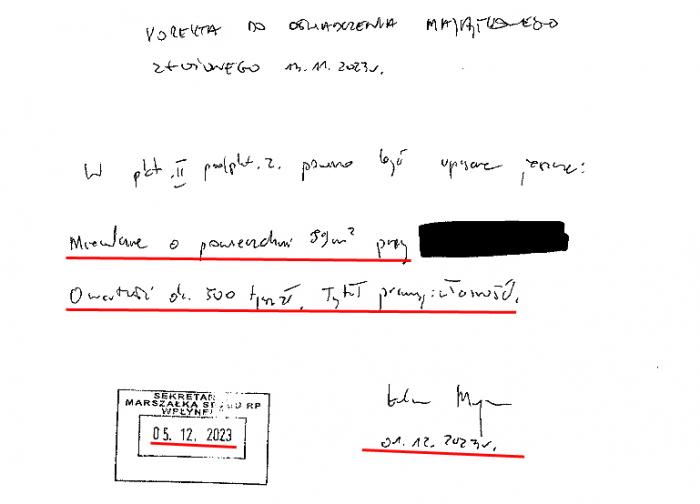 KOREKTA DO OŚWIADCZENIA MAJĄTKOWEGO
ZŁOŻONEGO 13.11.2023r.
W pkt. II podpkt. 2. powinno być wpisane jeszcze:
Mieszkanie o powierzchni 59m² przy
O wartości ok. 500 tys zł. Tytuł prawny: własność.
SEKRETAR
MARSZAŁKA S RP
WPŁYNĘ
05. 12. 2023
01.12.2023r.